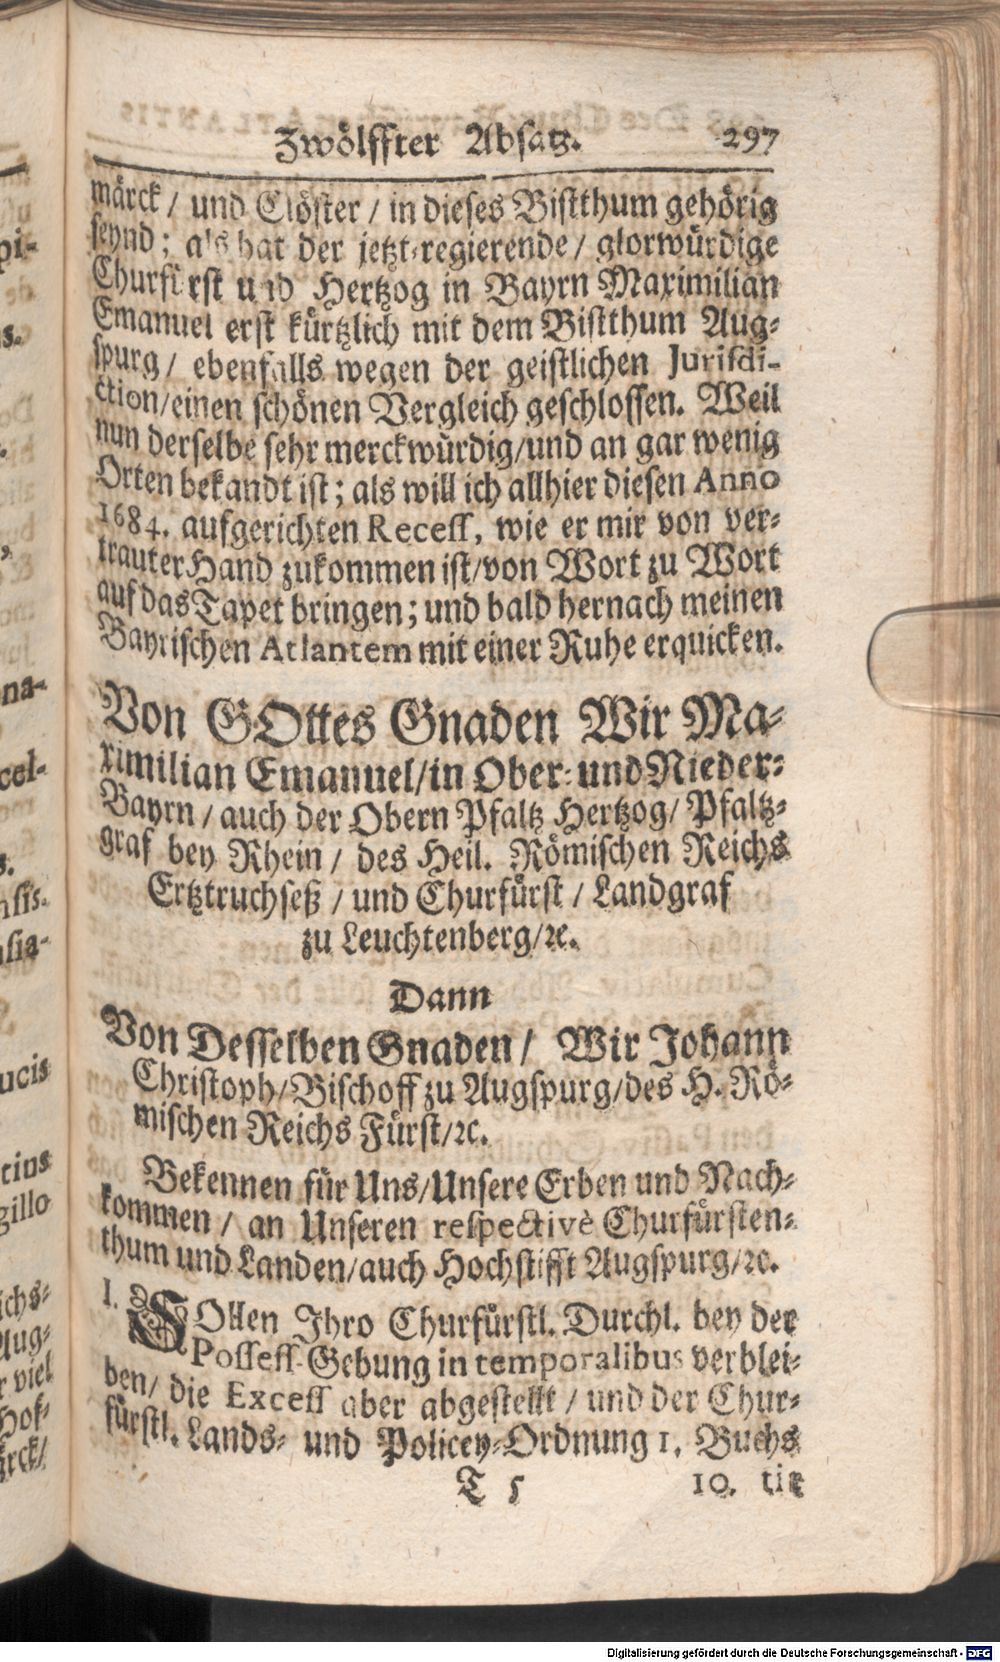 Zwölffter Absatz. 297
märck / und Clöster / in dieses Bistthum gehörig
seynd; als hat der jetzt-regierende / glorwürdige
Churfürst und Hertzog in Bayrn Maximilian
Emanuel erst kürtzlich mit dem Bistthum Aug-
spurg / ebenfalls wegen der geistlichen Jurisdi-
ction/einen schönen Vergleich geschlossen. Weil
nun derselbe sehr merckwürdig/und an gar wenig
Orten bekandt ist; als will ich allhier diesen Anno
1684. aufgerichten Recess, wie er mir von ver-
trauter Hand zukommen ist/von Wort zu Wort
auf das Tapet bringen; und bald hernach meinen
Bayrischen Atlantem mit einer Ruhe erquicken.
Von GOttes Gnaden Wir Ma-
ximilian Emanuel/in Ober- und Nieder-
Bayrn / auch der Obern Pfaltz Hertzog/ Pfaltz-
graf bey Rhein / des Heil. Römischen Reichs
Ertztruchseß / und Churfürst / Landgraf
zu Leuchtenberg/ꝛc.
Dann
Von Desselben Gnaden / Wir Johann
Christoph/Bischoff zu Augspurg/des H. Rö-
mischen Reichs Fürst/ꝛc.
Bekennen für Uns/Unsere Erben und Nach-
kommen / an Unseren respectivè Churfürsten-
thum und Landen/auch Hochstifft Augspurg/ꝛc.
I. SOllen Ihro Churfürstl. Durchl. bey der
Possess-Gebung in temporalibus verblei-
ben/ die Excess aber abgestellt / und der Chur-
fürstl. Lands- und Policey-Ordnung 1. Buchs
T 5 10. tit
pi-
s.
na-
cel-
s.
nsis.
usia-
ucis
tius
gillo
ichs-
Aug-
r viel
Hof-
ärck/
Digitalisierung gefördert durch die Deutsche Forschungsgemeinschaft - DFG